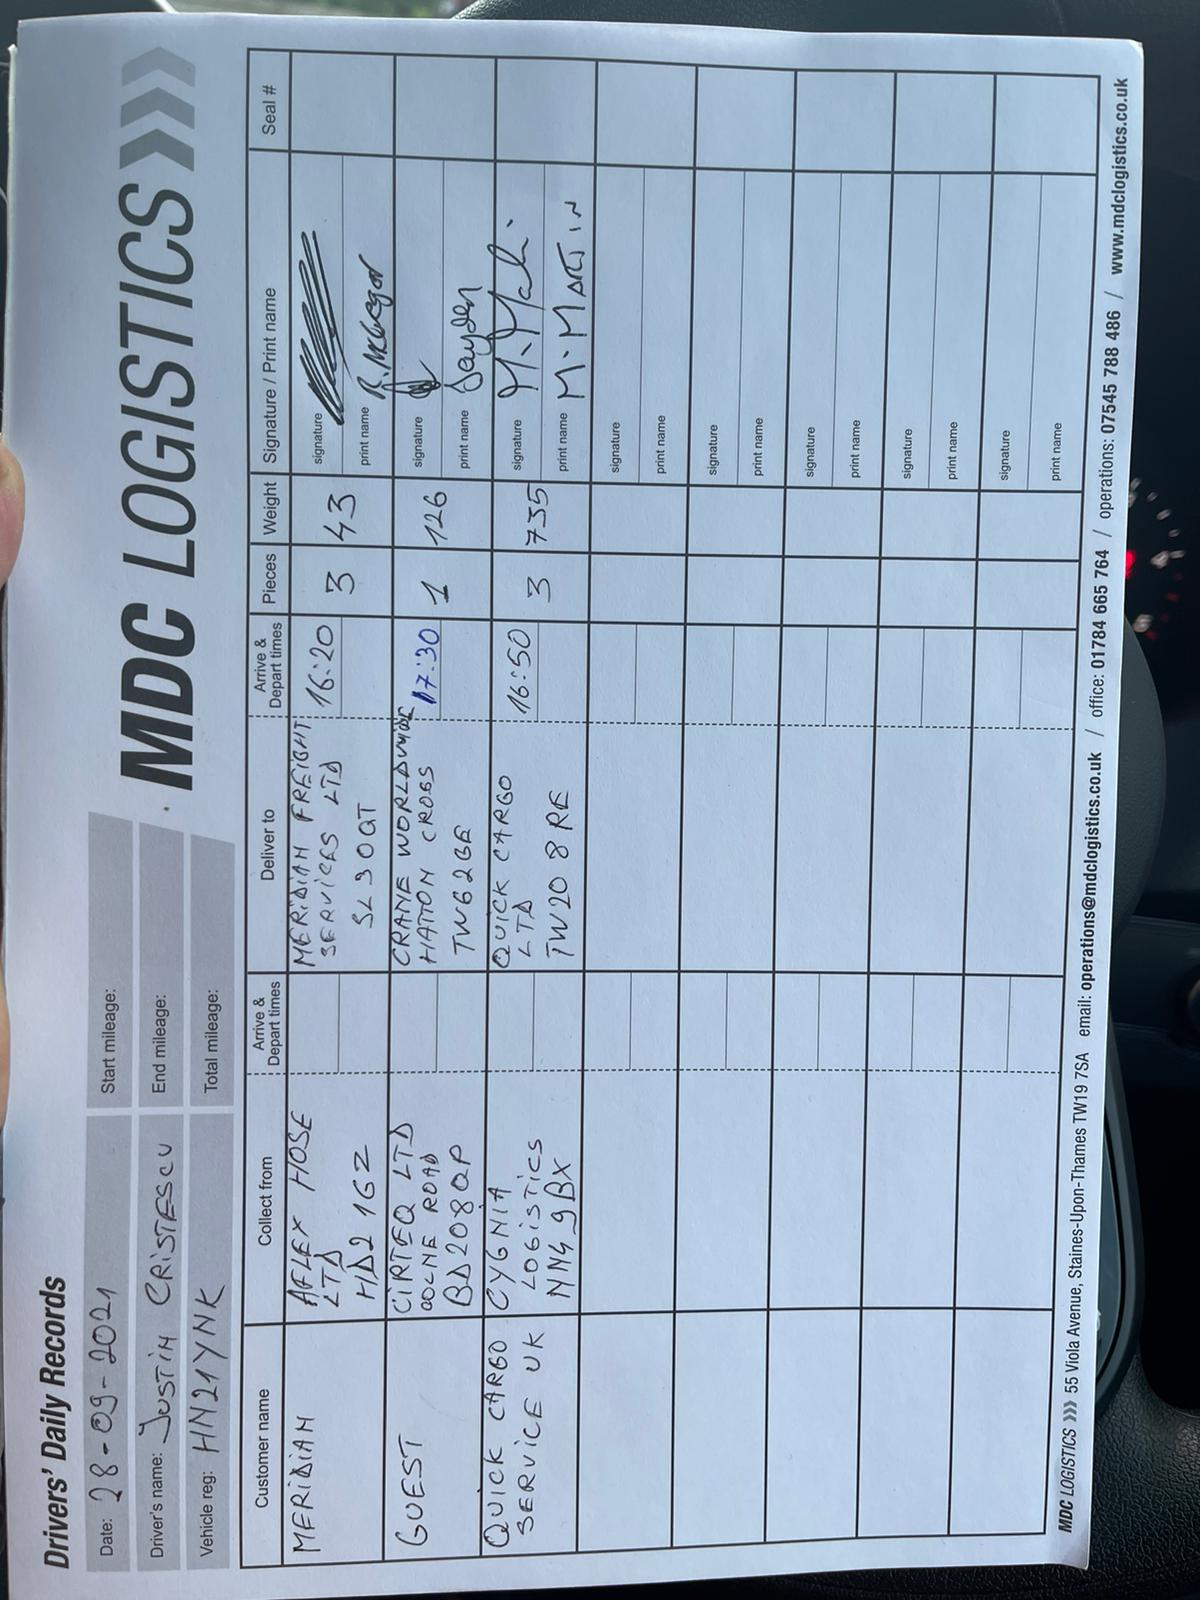 Drivers' Daily Records
MDC LOGISTICS
Date: 28-09-2021
Start mileage:
Driver's name: JUSTIN CRISTESCU
End mileage:
Vehicle reg: HN21YNK
Total mileage:
Customer name Collect from Arrive & Depart times Deliver to Arrive & Depart times Pieces Weight Signature / Print name Seal #
MERIDIAN
AFLEX HOSE
LTD
HD2 1GZ
MERIDIAN FREIGHT
SERVICES LTD
SL3 0QT
16:20
3
43
signature
print name R. McGregor
GUEST
CIRTEQ LTD
COLNE ROAD
BD208QP
CRANE WORLDWIDE
HATTON CROSS
TW6 2GE
17:30
1
126
signature
print name Jayden
QUICK CARGO
SERVICE UK
CYGNIA
LOGISTICS
NN4 9BX
QUICK CARGO
LTD
TW20 8RE
16:50
3
735
signature
print name M. MARTIN
signature
print name
signature
print name
signature
print name
signature
print name
signature
print name
MDC LOGISTICS 55 Viola Avenue, Staines-Upon-Thames TW19 7SA email: operations@mdclogistics.co.uk / office: 01784 665 764 / operations: 07545 788 486 / www.mdclogistics.co.uk